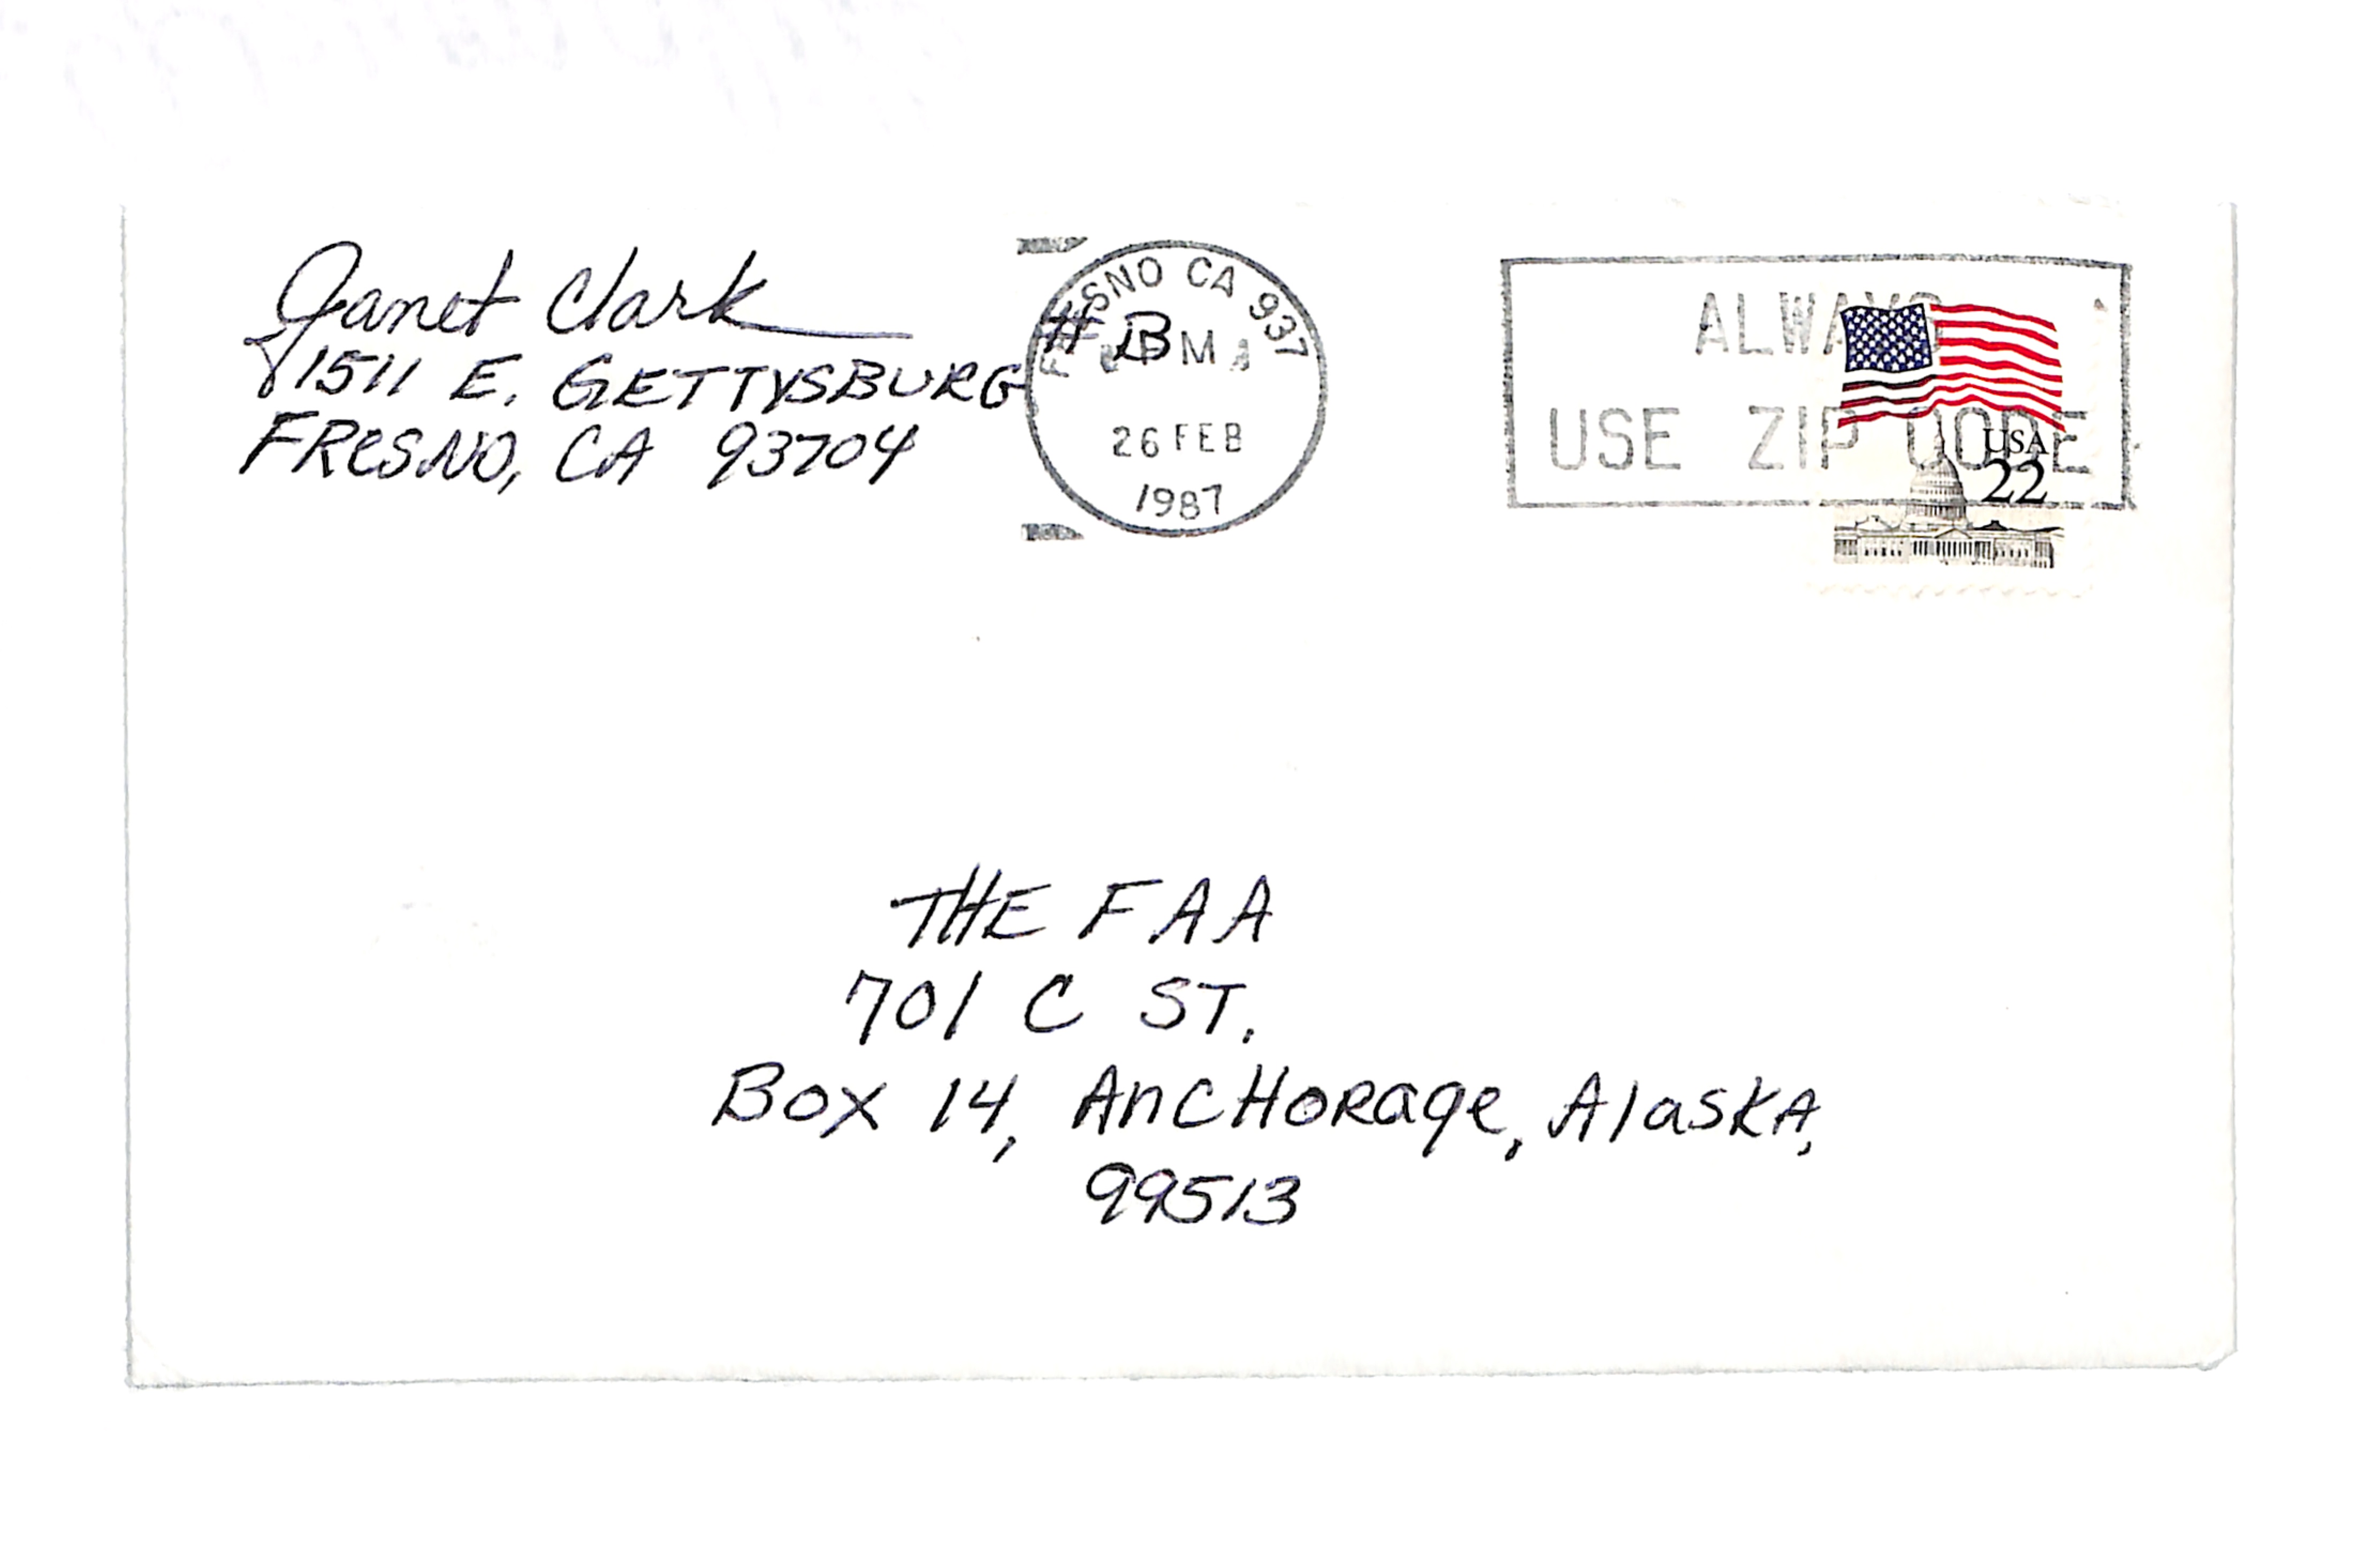 Janet Clark
1511 E. GETTYSBURG #B
FRESNO, CA 93704
FRESNO CA 937
PM
26 FEB
1987
ALWAYS
USE ZIP CODE
USA
22
THE FAA
701 C ST.
Box 14, AncHoRage, AlasKA,
99513